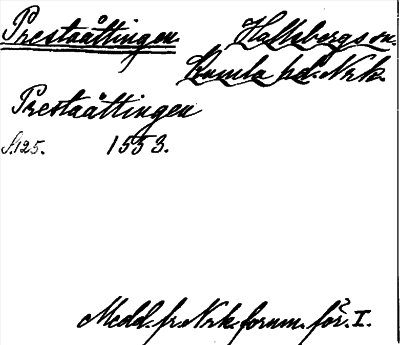 Prestaåttingen Hallsbergs sn.
Kumla hd. Nrk.
Prestaåttingen
s. 125. 1553.
Medd. fr. Nrk. fornm. för. I.